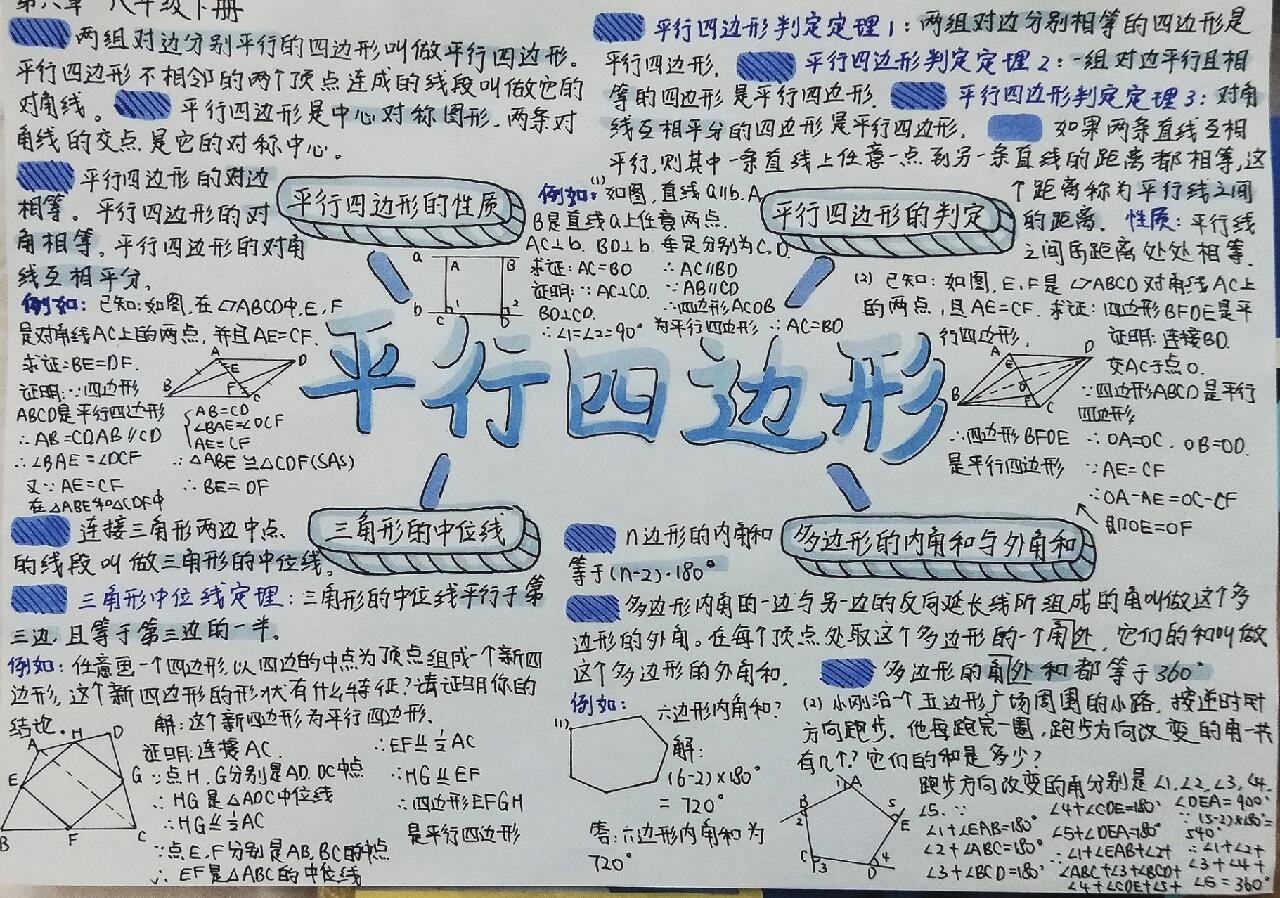 第六章 八年级下册
两组对边分别平行的四边形叫做平行四边形.
平行四边形不相邻的两个顶点连成的线段叫做它的
对角线。 平行四边形是中心对称图形,两条对
角线的交点是它的对称中心。
平行四边形的对边
相等。平行四边形的对
角相等,平行四边形的对角
线互相平分.
平行四边形的性质
例如:已知:如图,在▱ABCD中,E,F
是对角线AC上的两点,并且AE=CF.
求证:BE=DF.
证明:∵四边形
ABCD是平行四边形
∴AB=CD AB∥CD
∴∠BAE=∠DCF
又∵AE=CF
在△ABE和△CDF中
A
D
E
F
B
C
AB=CD
∠BAE=∠DCF
AE=CF
∴△ABE≌△CDF(SAS)
∴BE=DF
平行四边形判定定理1:两组对边分别相等的四边形是
平行四边形. 平行四边形判定定理2:一组对边平行且相
等的四边形是平行四边形. 平行四边形判定定理3:对角
线互相平分的四边形是平行四边形. 如果两条直线互相
平行,则其中一条直线上任意一点到另一条直线的距离都相等,这
个距离称为平行线之间
的距离. 性质:平行线
之间的距离处处相等.
平行四边形的判定
例如:(1)如图,直线a∥b,A,
B是直线a上任意两点.
AC⊥b,BD⊥b,垂足分别为C,D.
求证:AC=BD
证明:∵AC⊥CD.
BD⊥CD.
∴∠1=∠2=90°
∴AC∥BD
∵AB∥CD
∴四边形ACDB
为平行四边形 ∴AC=BD
a
A
B
b
1
2
C
D
(2) 已知:如图,E,F是▱ABCD对角线AC上
的两点,且AE=CF. 求证:四边形BFDE是平
行四边形.
证明:连接BD.
交AC于点O.
∵四边形ABCD是平行
四边形
∴OA=OC,OB=OD.
∵AE=CF
∴OA-AE=OC-CF
即OE=OF
∴四边形BFDE
是平行四边形
A
D
E
O
F
B
C
平行四边形
三角形的中位线
连接三角形两边中点
的线段叫做三角形的中位线.
三角形中位线定理:三角形的中位线平行于第
三边,且等于第三边的一半。
例如:任意画一个四边形,以四边的中点为顶点组成一个新四
边形,这个新四边形的形状有什么特征?请证明你的
结论.
解:这个新四边形为平行四边形.
证明:连接AC
∵点H,G分别是AD,DC中点
∴HG是△ADC中位线
∴HG⫽½AC
∵点E,F分别是AB,BC的中点
∴EF是△ABC的中位线
∴EF⫽½AC
∴HG⫽EF
∴四边形EFGH
是平行四边形
A
H
D
E
G
B
F
C
多边形的内角和与外角和
n边形的内角和
等于(n-2)·180°
多边形内角的一边与另一边的反向延长线所组成的角叫做这个多
边形的外角。在每个顶点处取这个多边形的一个角外,它们的和叫做
这个多边形的外角和. 多边形的角外和都等于360°
例如:
(1)
六边形内角和?
解:
(6-2)×180°
=720°
答:六边形内角和为
720°
(2) 小刚沿一个五边形广场周围的小路,按逆时针
方向跑步,他每跑完一圈,跑步方向改变的角一共
有几个?它们的和是多少?
跑步方向改变的角分别是∠1,∠2,∠3,∠4,
∠5.∵
∠1+∠EAB=180°
∠2+∠ABC=180°
∠3+∠BCD=180°
∠4+∠CDE=180°
∠5+∠DEA=180°
∴∠1+∠EAB+∠2+
∠ABC+∠3+∠BCD+
∠4+∠CDE+∠5+
∠DEA=900°
∵(5-2)×180°=
540°
∴∠1+∠2+
∠3+∠4+
∠5=360°
1
A
B
2
5
E
C
3
D
4